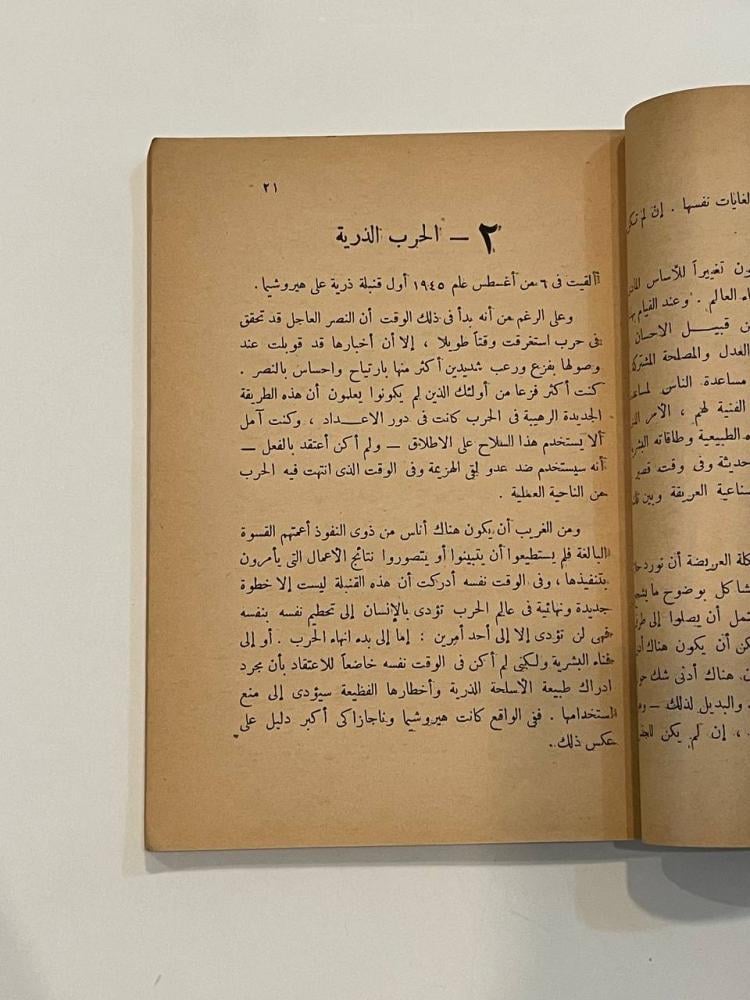 لغايات نفسها . إن لم تكن
ون تغييراً للأساس
اء العالم . وعند القيام
ن قبيل الاحسان
العدل والمصلحة المشتركة
مساعدة الناس
الفنية لهم ، الأمر
ه الطبيعية وطاقاته
حديثة وفى وقت قصير
سناعية العريقة وبين
كلة العريضة أن نورد
شاكل بوضوح
تمل أن يصلوا إلى
كن أن يكون هناك
ن هناك أدنى شك
. والبديل لذلك —
، إن لم يكن
٢١
٢ — الحرب الذرية
ألقيت فى ٦ من أغسطس عام ١٩٤٥ أول قنبلة ذرية على هيروشيما .
وعلى الرغم من أنه بدأ فى ذلك الوقت أن النصر العاجل قد تحقق
فى حرب استغرقت وقتاً طويلا ، إلا أن أخبارها قد قوبلت عند
وصولها بفزع ورعب شديدين أكثر منها بارتياح واحساس بالنصر .
كنت أكثر فزعا من أولئك الذين لم يكونوا يعلمون أن هذه الطريقة
الجديدة الرهيبة فى الحرب كانت فى دور الاعـــداد ، وكنت آمل
ألا يستخدم هذا السلاح على الاطلاق — ولم أكن أعتقد بالفعل —
أنه سيستخدم ضد عدو لقى الهزيمة وفى الوقت الذى انتهت فيه الحرب
من الناحية العملية .
ومن الغريب أن يكون هناك أناس من ذوى النفوذ أعمتهم القسوة
البالغة فلم يستطيعوا أن يتبينوا أو يتصوروا نتائج الأعمال التى يأمرون
بتنفيذها ، وفى الوقت نفسه أدركت أن هذه القنبلة ليست إلا خطوة
جديدة ونهائية فى عالم الحرب تؤدى بالإنسان إلى تحطيم نفسه بنفسه
فهى لن تؤدى إلا إلى أحد أمرين : إما إلى بدء انهاء الحرب . أو إلى
فناء البشرية ولكنى لم أكن فى الوقت نفسه خاضعاً للاعتقاد بأن مجرد
ادراك طبيعة الأسلحة الذرية وأخطارها الفظيعة سيؤدى إلى منع
استخدامها . ففى الواقع كانت هيروشيما وناجازاكى أكبر دليل على
عكس ذلك .